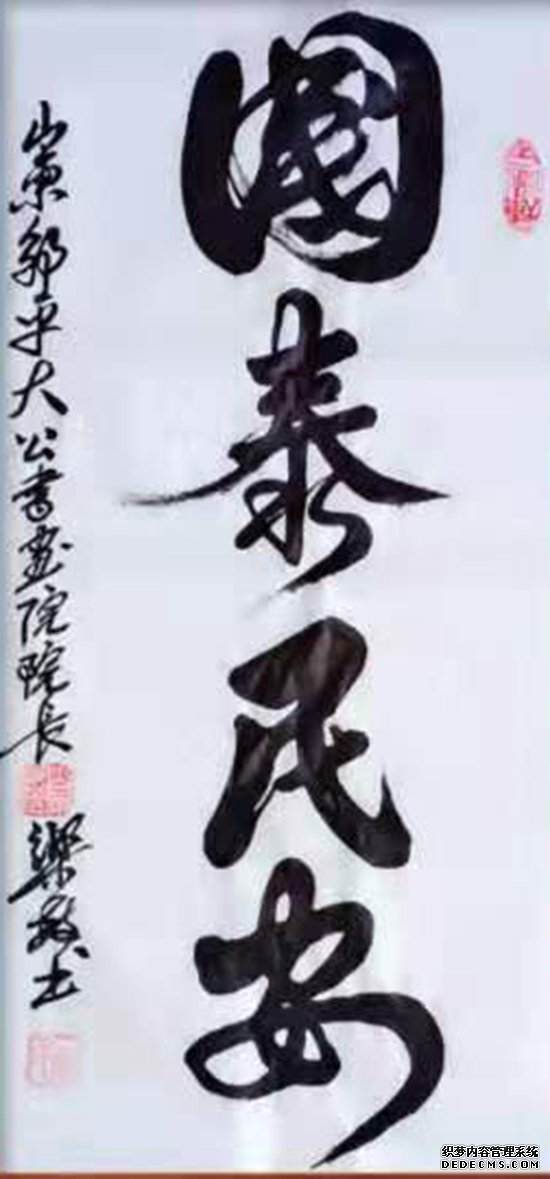 國泰民安
山東鄒平大公書畫院院長
樂敬書
织梦内容管理系统
DEDECMS.COM